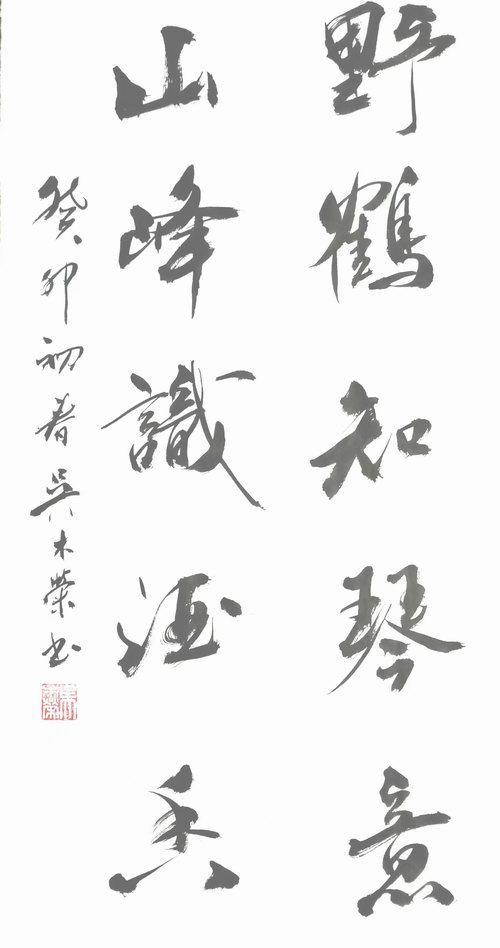 野鶴知琴意
山峰識酒香
癸卯初春吳木榮书